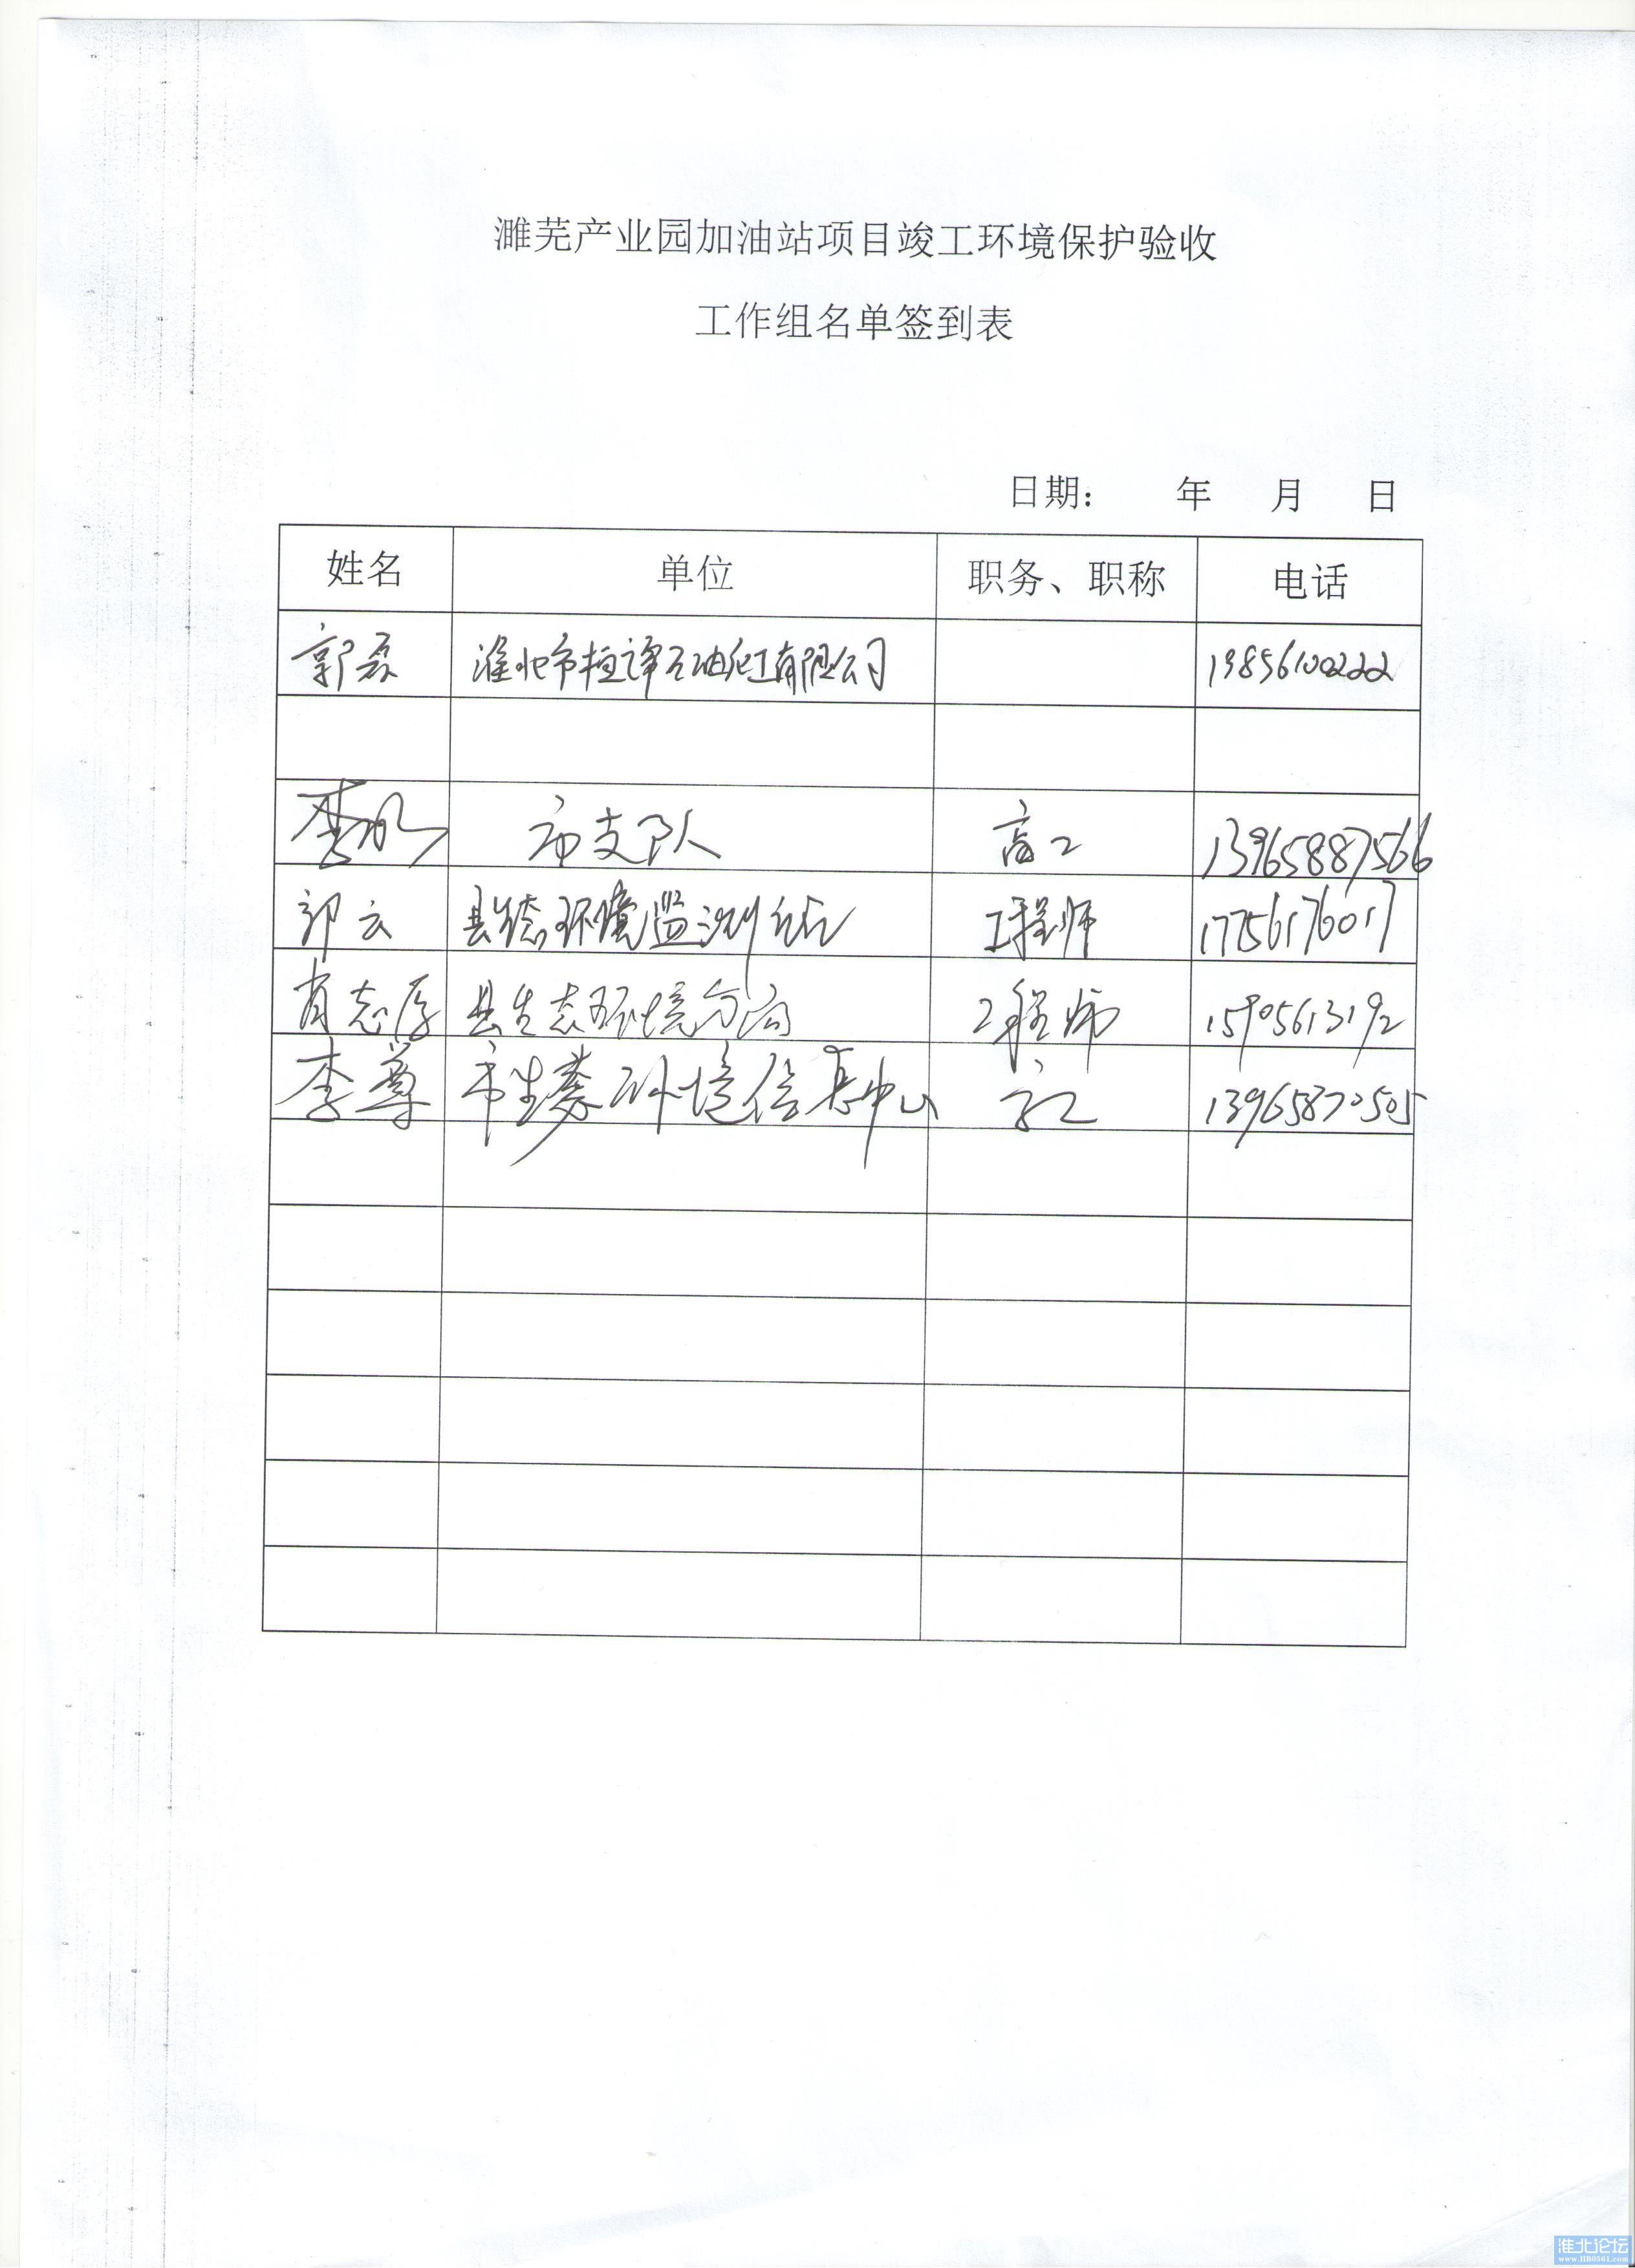 濉芜产业园加油站项目竣工环境保护验收
工作组名单签到表
日期： 年 月 日
姓名 单位 职务、职称 电话
郭磊 淮北市恒译石油化工有限公司 19856100222
李 市支队 高工 13965887566
郭云 县生态环境监测站 工程师 17756176017
肖志厚 县生态环境分局 工程师 15905613192
李尊 市生态环境信息中心 高工 13965870505
淮北论坛
www.HB0561.com